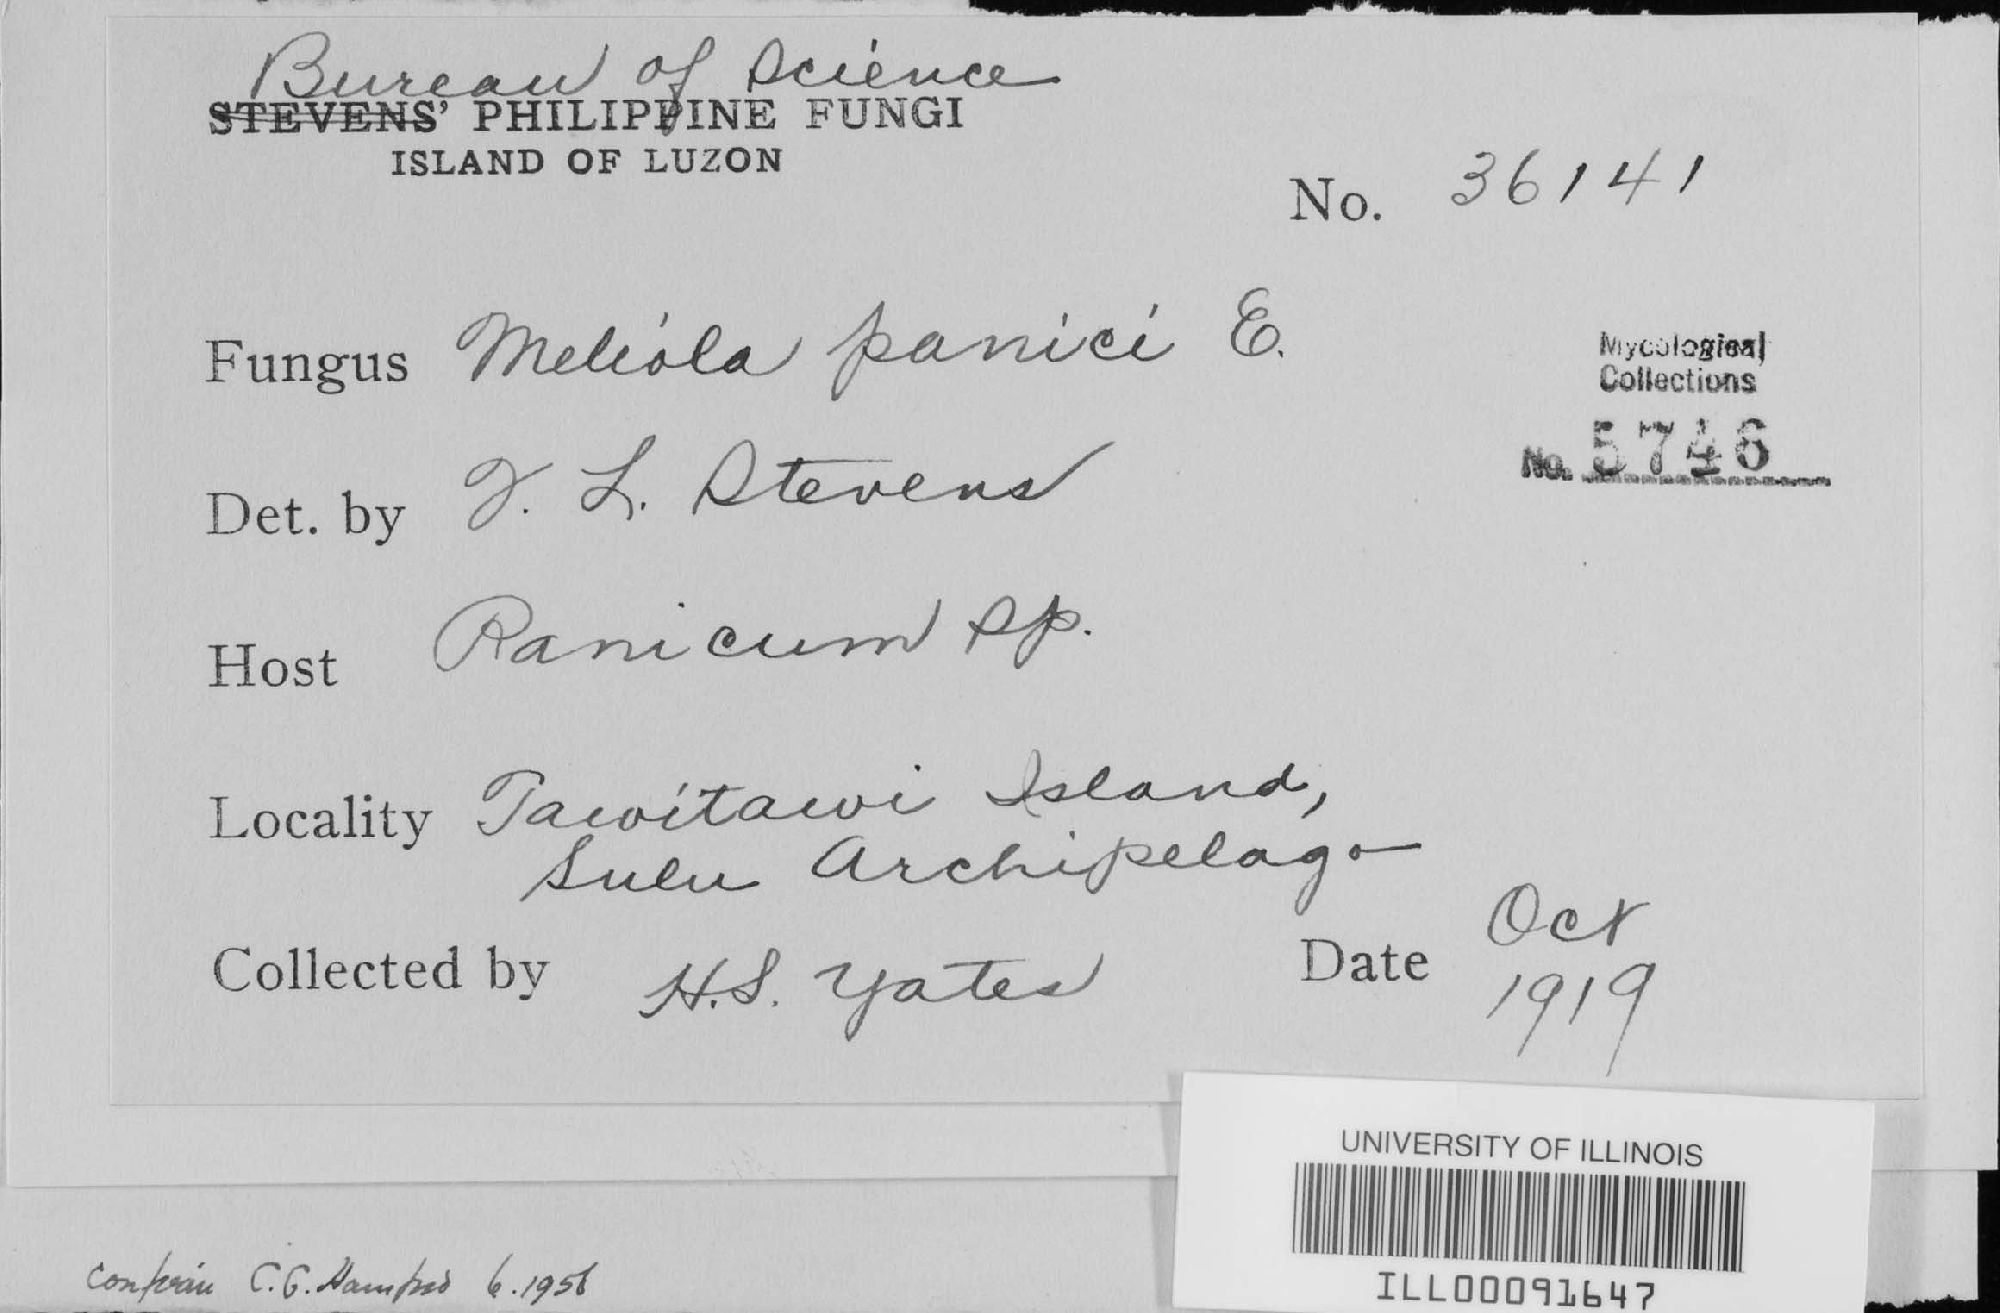 Bureau of Science
STEVENS' PHILIPPINE FUNGI
ISLAND OF LUZON
No. 36141
Fungus Meliola panici E.
Mycological
Collections
No. 5746
Det. by F. L. Stevens
Host Panicum sp.
Locality Tawitawi Island,
Sulu Archipelago
Collected by H.S. Yates
Date Oct
1919
UNIVERSITY OF ILLINOIS
ILL00091647
C.G. 6.1956